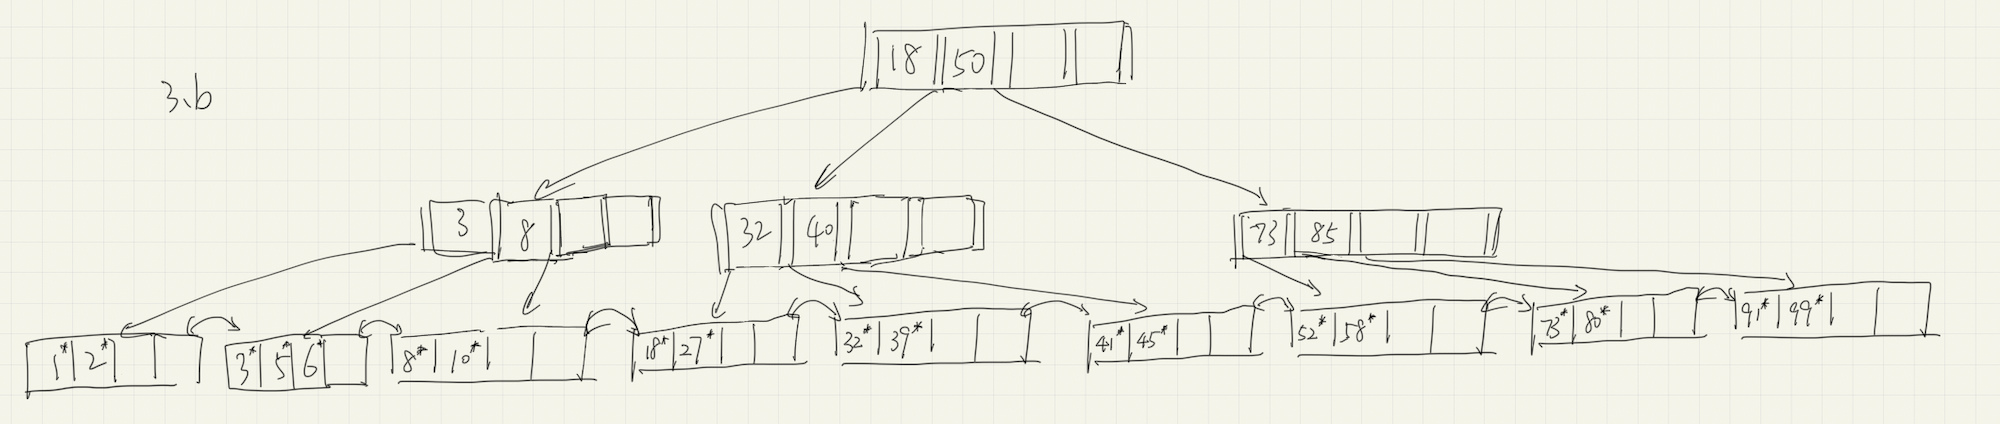 18 50
3.b
3 8
32 40
73 85
1* 2*
3* 5* 6*
8* 10*
18* 27*
32* 39*
41* 45*
52* 58*
73* 80*
91* 99*